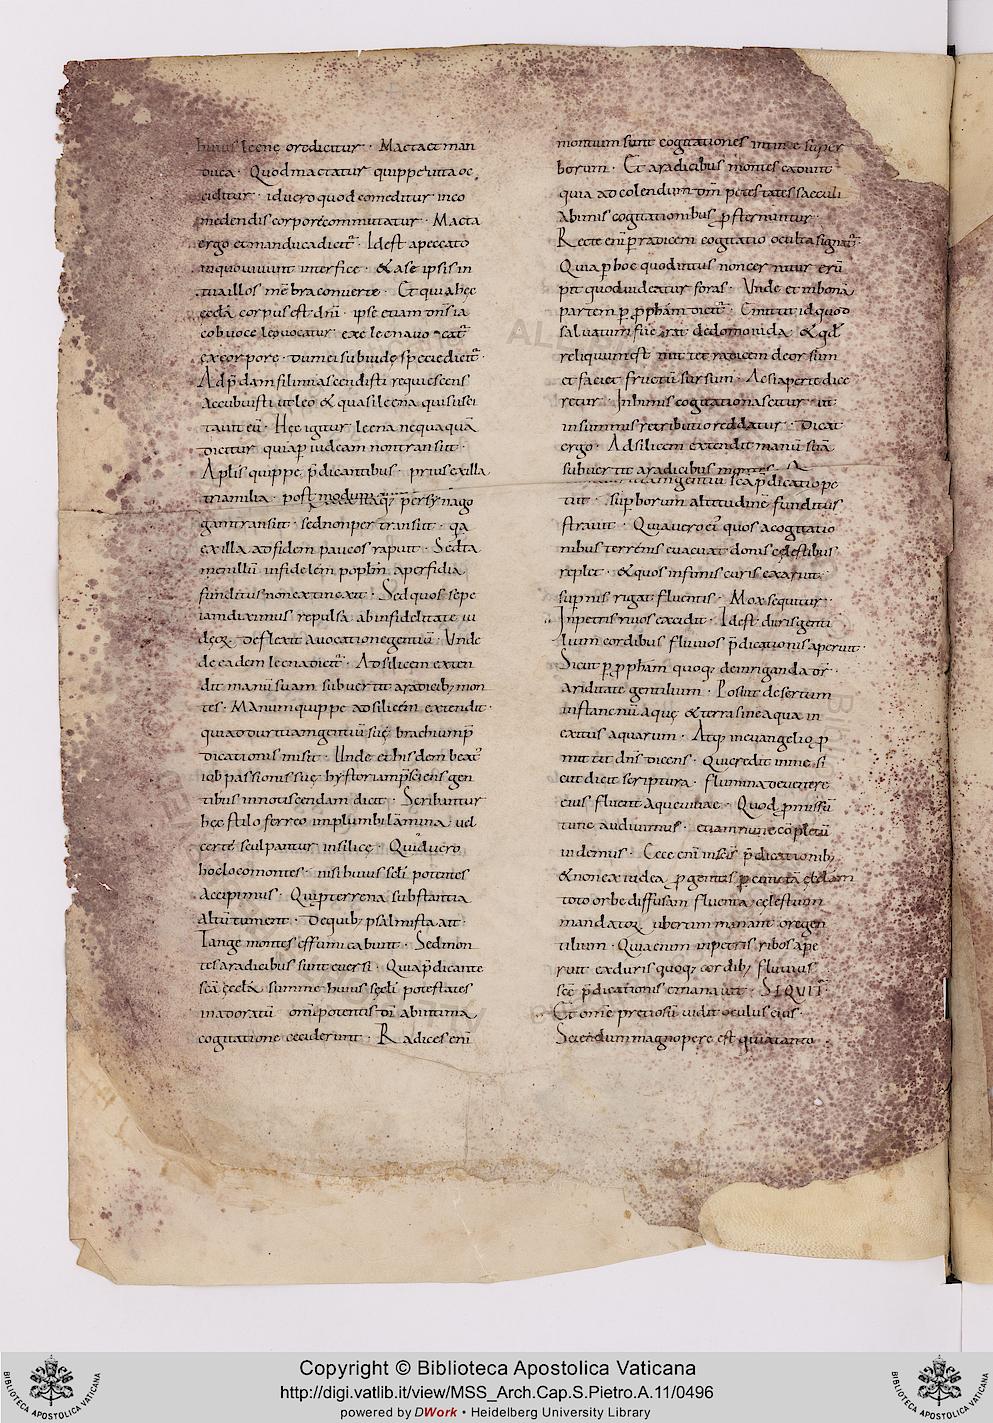 huius leene ore dicitur · Macta et man
duca · Quod mactatur quippe uita oc
ciditur · id uero quod comeditur in co
medendis corpore commutatur · Macta
ergo et manduca dicit᷒ · Idest a peccato
in quo uiuunt interfice · & a se ipsis in
tua illos mēbra conuerte · Et quia hęc
ęcclā corpus est dn̄i · ipse etiam dn̄s ia
cob uoce leo uocatur ex se leena uo cat᷒
ex corpore · dum ei sub iude specie dicit᷒ ·
Ad p̄dam fili mi ascendisti requiescens
Accubuisti ut leo & quasi leena quis susci
tauit eū · Hęc igitur leena nequaquā
dicitur quia p̱ iudeam non transiit ·
Aplis quippe p̄dicantibus · prius ex illa
tria milia · post modum quinq; p̱ersynago
gam transiit · sed non per transiit · q̄a
ex illa ad fidem paucos rapuit · Sed ta
men illū infidelem poplm̄ a perfidia
funditus non extincxit · Sed quos sępe
iam diximus repulsa ab infidelitate iu
dęoꝝ · deflexit a uocatione gentiū · Unde
de eadem leena dicit᷒ · Ad silicem exten
dit manū suam subuertit a radicib; mon
tes · Manum quippe ad silicem extendit ·
quia ad duritiam gentiū suę brachium p̄
dicationis misit · Unde et hisdem beat᷒
iob passionis suę hystoriam p̄sciens gen
tibus innotiscendam dicit · Scribuntur
hęc stilo ferreo in plumbi lāmina · uel
certe sculpantur in silice · Quid uero
hoc loco montes · nisi huius sc̄li potentes
accipimus · Qui p̱ terrena substantia
altū tument · De quib; psalmista ait ·
Tange montes et fumicabunt · Sed mon
tes a radicibus sunt euersi · Quia p̄dicante
scā ęcclā summe huius sęcli potestates
in adoratū omnipotentis dī ab intima
cogitatione ceciderunt · Radices enī
montium sunt cogitationes intimę super
borum · Et a radicibus montes cadunt
quia ad colendum dm̄ potestates sęculi
ab imis cogitationibus p̱sternuntur ·
Recte enī p̱ radicem cogitatio occulta signat᷒ ·
Quia p̱ hoc quod intus non cernitur erū
pit quod uideatur foras · Unde et in bonā
partem p̱ p̱phetam dicit᷒ · Emittit id quod
saluatum fuerat de domo iuda · & qđ
reliquum est mittet radicem deorsum
et faciet fructū sursum · Ac si aperte dice
retur · In humis cogitatio nascitur · ut
in summis retributio reddatur · Dicat
ergo · Ad silicem extendit manū suā
subuertit a radicibus montes ·
gentiū scā p̄dicatio pe
tiit · sup̱borum altitudinē funditus
strauit · Quia uero eī quos a cogitatio
nibus terrenis euacuat donis cęlestibus
replet · & quos infimis curis exarcuit
sup̱nis rigat fluentis · Mox sequitur ·
In petris riuos excidit · Idest duris genti
lium cordibus fluuios p̄dicationis aperuit ·
Sicut p̱ p̱phetam quoq; de inriganda dr̄ ·
ariditate gentilium · Posuit desertum
in stagnū aquę & terra sine aqua in
exitus aquarum · Atq; in euangelio p̱
mittit dn̄s dicens · Qui credit in me · si
cut dicit scriptura · flumina de uentre
eius fluent aquę uiuae · Quod p̱missū
tunc audiuimus · etiam nunc cōpletū
uidemus · Ecce enī in scīs p̄dicationib;
& non ex iudea p̱ gentes p̱ cunctā ęcclam
toto orbe diffusam fluenta cęlestium
mandatoꝝ ubertim manant ore gen
tilium · Quia enim in petris riuos ape
ruit ex duris quoq; cordib; fluuius
scę p̄dicationis emanauit · SEQUIT᷒ ·
Et omne pretiosū uidit oculus eius ·
Sciendum magnopere est quia tanto
ALL
BIBL
Copyright © Biblioteca Apostolica Vaticana
http://digi.vatlib.it/view/MSS_Arch.Cap.S.Pietro.A.11/0496
powered by DWork • Heidelberg University Library
BIBLIOTECA APOSTOLICA VATICANA
BIBLIOTECA APOSTOLICA VATICANA